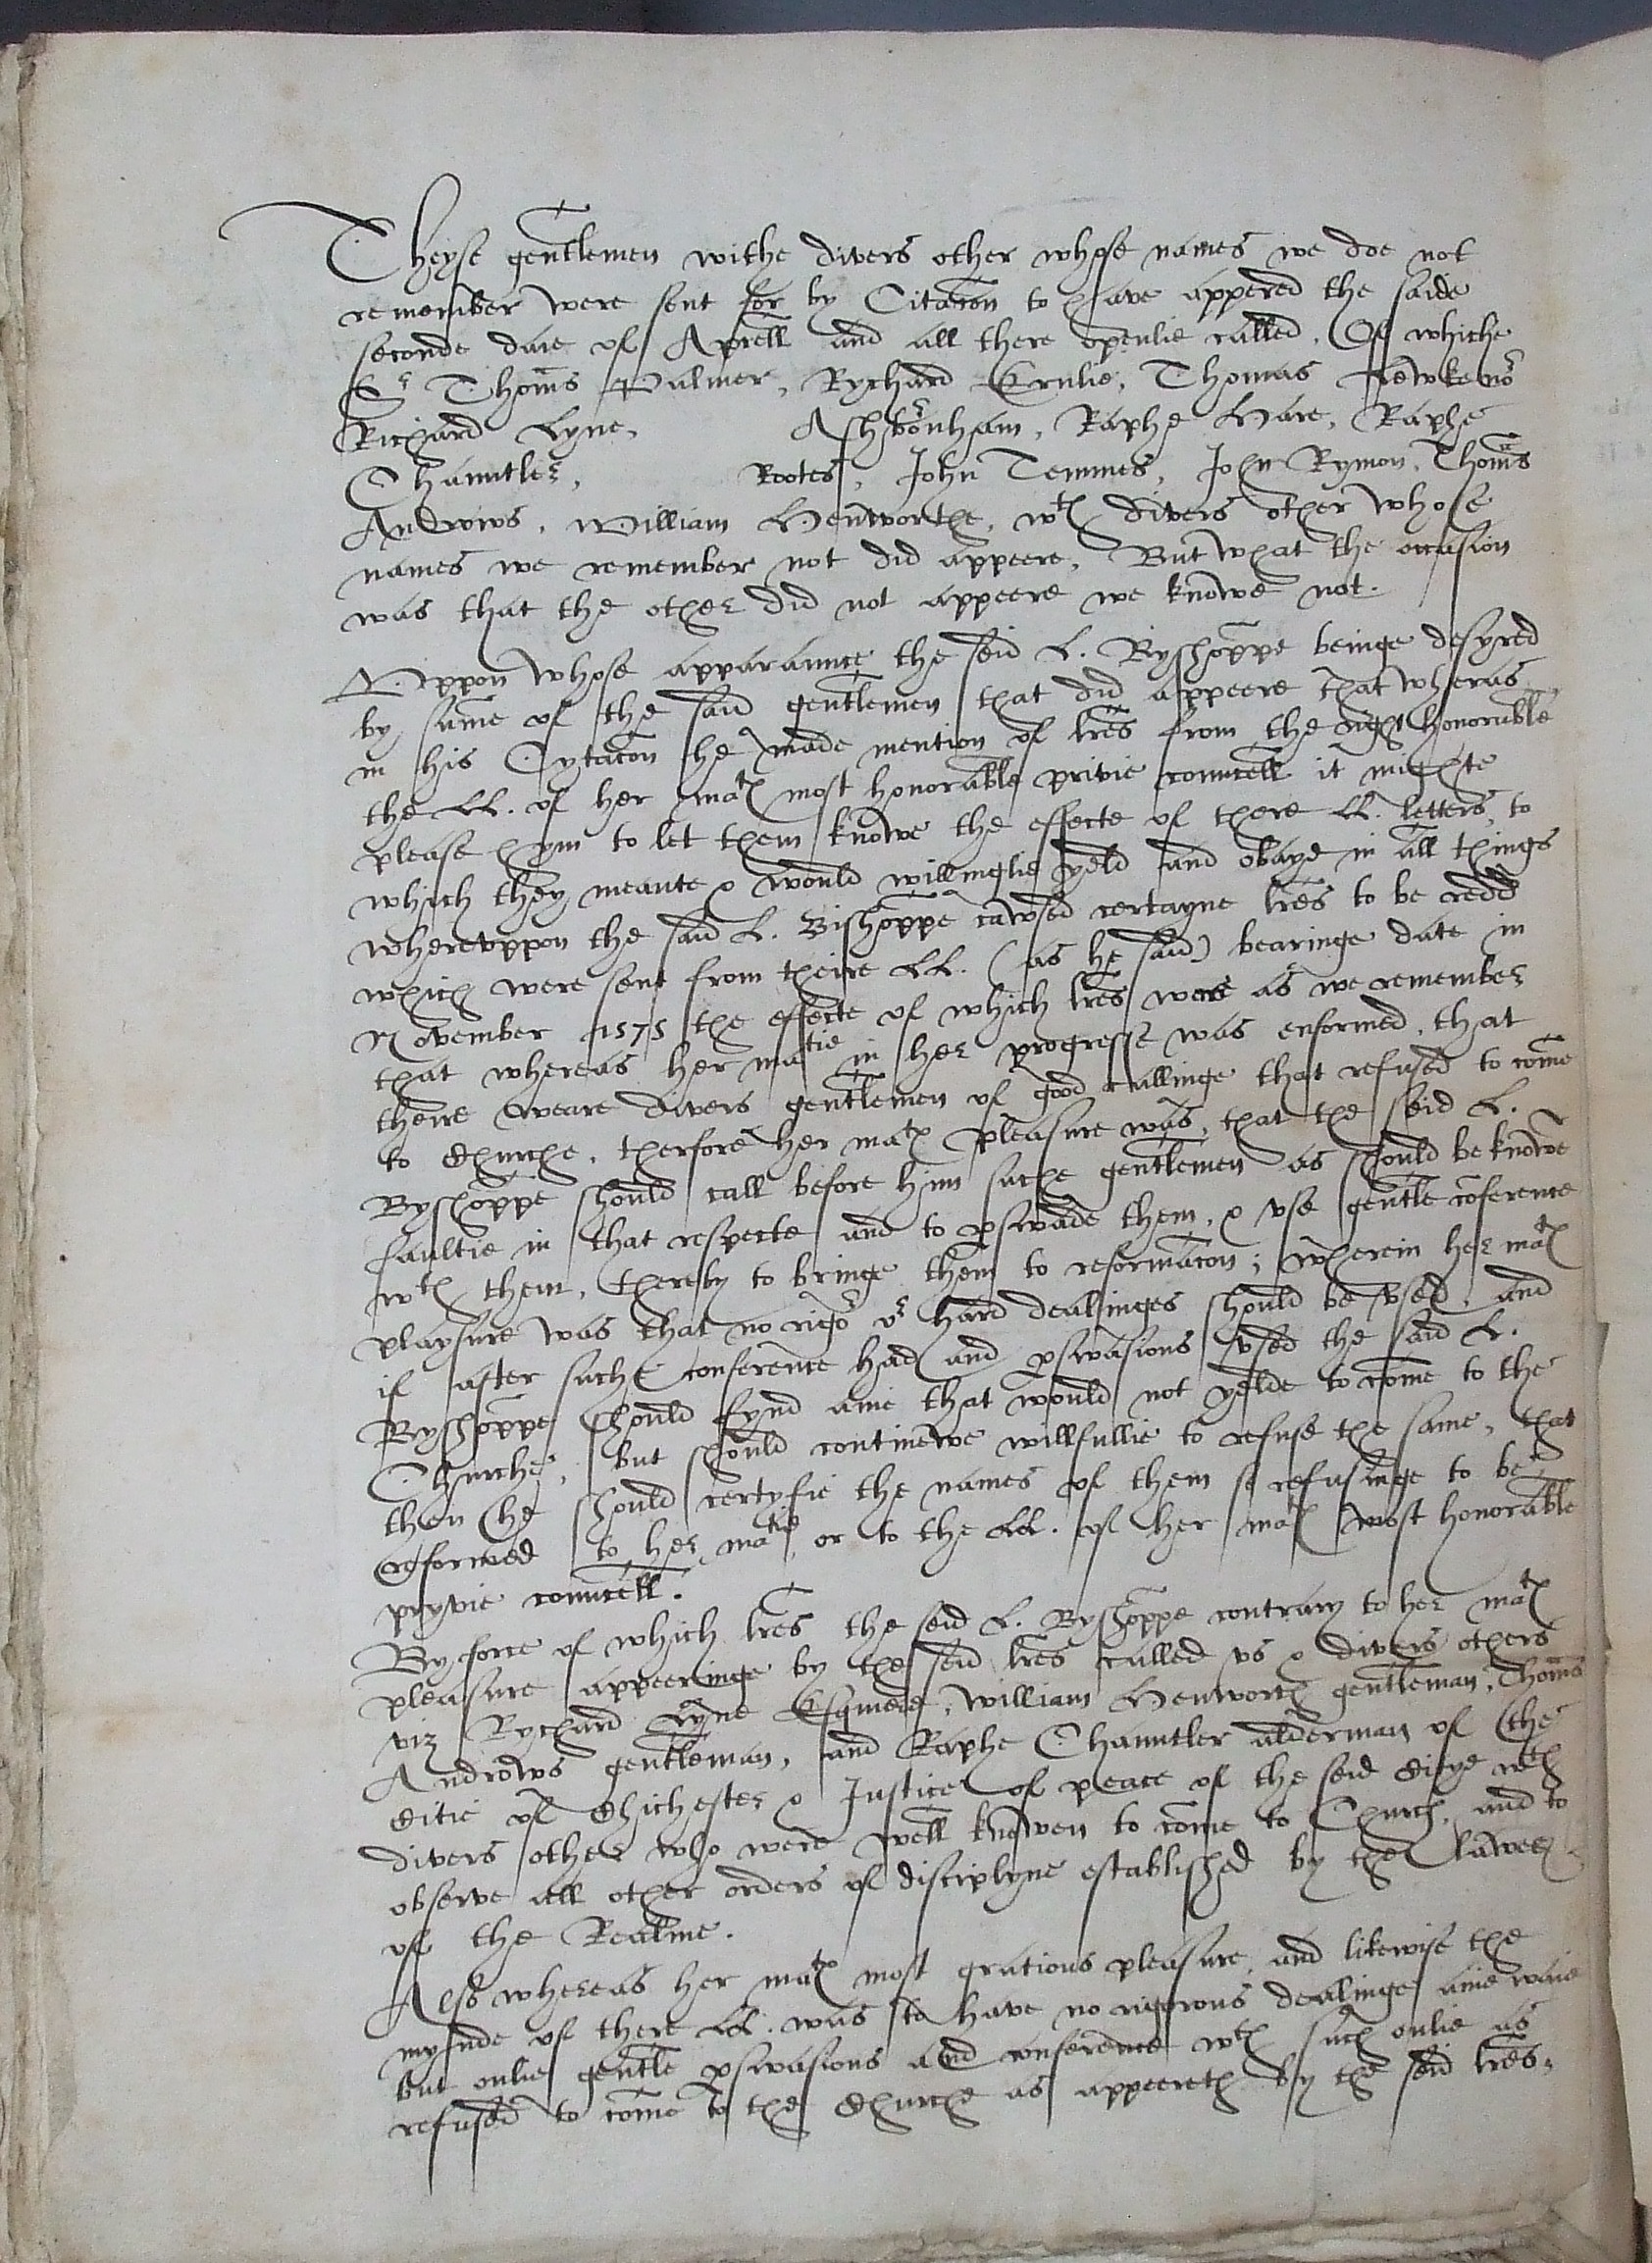 Theyse gentlemen withe divers other whose names we doe not
remember were sent for by Citacon to have appered the saide
seconde daie of Aprell and all there openlie called. Of whiche
Sr Thoms Palmer, Rychard Ernlie, Thomas Lewkenor
Richard Lyne, Ashbornham, Raphe Hare, Raphe
Chauntler, Rootes, John Temmes, John Rymon, Thoms
Androws, William Henworthe, wth divers other whose
names we remember not did appeere, But what the occasion
was that the other did not appeere we knowe not.
Uppon whose apparaunce the seid L. Byshoppe beinge desyred
by sume of the said gentlemen that did appeere that wheras
in his Cytacon he made mention of lres from the right honorable
the LL. of her matx most honorable privie councell it mighte
please hym to let them knowe the effecte of there LL. letters, to
which they meante & would willinglie yeld and obaye in all things
wherevppon the said L. Bishoppe cawsed certayne lres to be redd
which were sent from theire LL. (as he said) bearinge date in
November 1575 the effecte of which lres were as we remember
that whereas her matie in her progresse was enformed, that
theire weare divers gentlemen of good callinge that refused to come
to Churche, therfore her matx pleasure was, that the seid L.
Byshoppe should call before him suche gentlemen as should be knowne
faultie in that respecte and to pswade them, & vse gentle coference
wth them, thereby to bringe them to reformacon; wherein her matx
playsure was that no rigor or hard dealinges should be vsed, and
if after suche conference had and pswasions vsed the said L.
Byshoppe should fynd anie that would not yelde to come to the
Churche, but should continewe willfullie to refuse the same, that
then he should certyfie the names of them so refusinge to be
reformed to her matie, or to the LL. of her matx most honorable
pryvie councell.
By force of which lres the seid L. Byshoppe contrary to her matx
pleasure appeeringe by the seid lres called vs & divers others
viz Rychard Lyne Esquiere, William Henworth gentleman, Thoms
Androws gentleman, and Raphe Chauntler alderman of the
Citie of Chichester & Justice of peace of the seid Citye wth
divers other who were well knowen to come to Church, and to
observe all other orders of disciplyne established by the lawes
of the Realme.
Also whereas her matx most gratious pleasure, and likewise the
mynde of there LL. was to have no rigorous dealinge anie waie
but onlie gentle pswasions and conference wth such onlie as
refused to come to the Churche as appeereth by the seid lres,